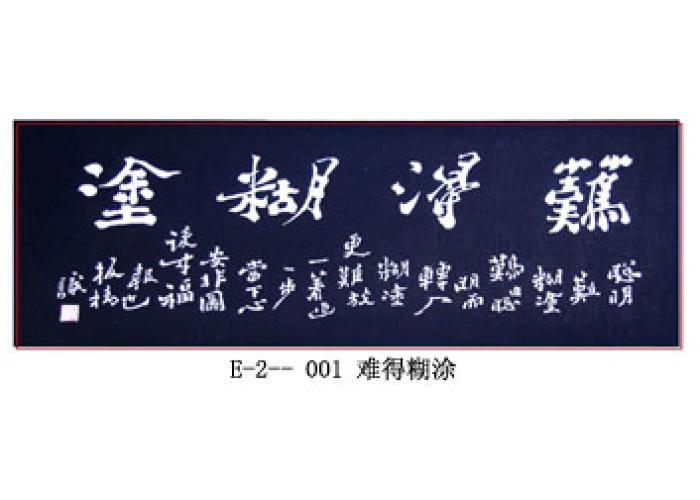 難得糊塗
聰明
難
糊塗
難聰
明而
轉入
糊塗
更難放
一着退
一步
當下心
安非圖
後來福
報也
板橋
識
E-2-- 001 难得糊涂